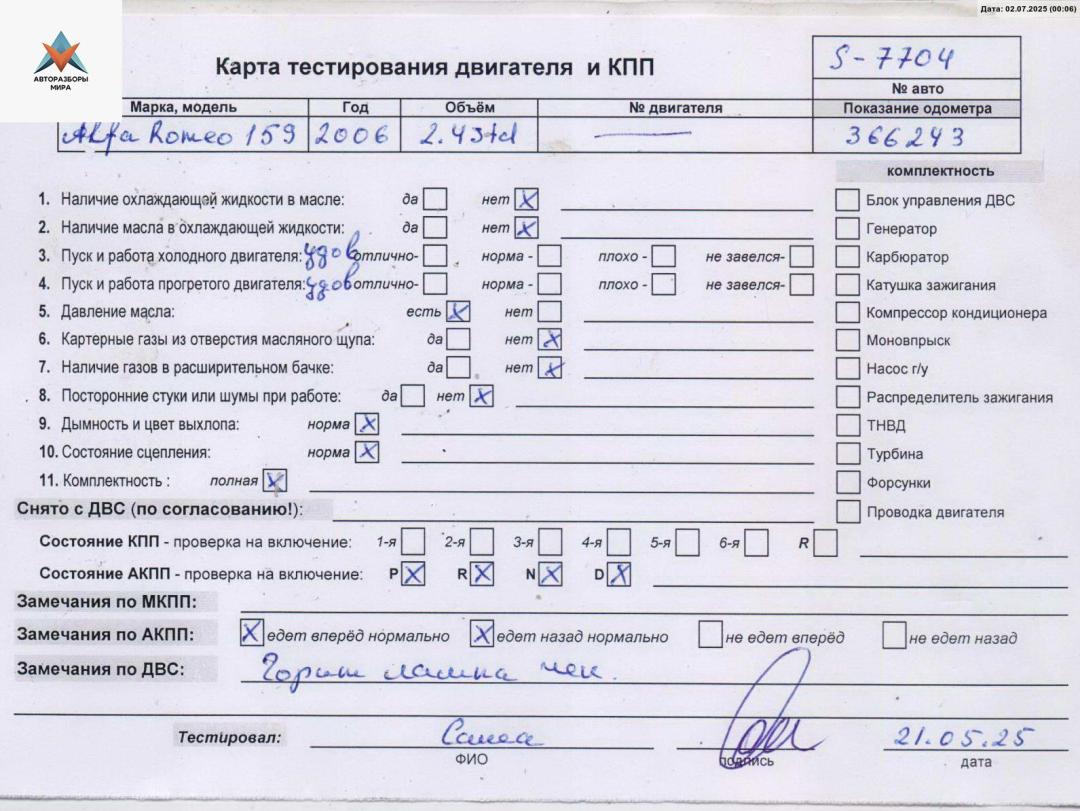 Дата: 02.07.2025 (00:06)
АВТОРАЗБОРЫ
МИРА
Карта тестирования двигателя и КПП
S-7704
№ авто
Марка, модель Год Объём № двигателя Показание одометра
Alfa Romeo 159 2006 2.4 jtd — 366243
комплектность
1. Наличие охлаждающей жидкости в масле: да нет X
Блок управления ДВС
2. Наличие масла в охлаждающей жидкости: да нет X
Генератор
3. Пуск и работа холодного двигателя: удов отлично- норма - плохо - не завелся-
Карбюратор
4. Пуск и работа прогретого двигателя: удов отлично- норма - плохо - не завелся-
Катушка зажигания
5. Давление масла: есть X нет
Компрессор кондиционера
6. Картерные газы из отверстия масляного щупа: да нет X
Моновпрыск
7. Наличие газов в расширительном бачке: да нет X
Насос г/у
8. Посторонние стуки или шумы при работе: да нет X
Распределитель зажигания
9. Дымность и цвет выхлопа: норма X
ТНВД
10. Состояние сцепления: норма X
Турбина
11. Комплектность : полная X
Форсунки
Снято с ДВС (по согласованию!):
Проводка двигателя
Состояние КПП - проверка на включение: 1-я 2-я 3-я 4-я 5-я 6-я R
Состояние АКПП - проверка на включение: P X R X N X D X
Замечания по МКПП:
Замечания по АКПП: X едет вперёд нормально X едет назад нормально не едет вперёд не едет назад
Замечания по ДВС: Горит лампа чек.
Тестировал: Саша 21.05.25
ФИО подпись дата